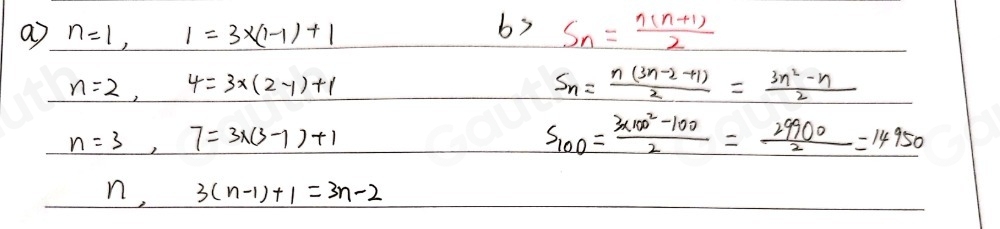 a) n=1, 1=3×(1-1)+1
n=2, 4=3×(2-1)+1
n=3, 7=3×(3-1)+1
n, 3(n-1)+1=3n-2
b> Sn = n(n+1)/2
Sn = n(3n-2+1)/2 = 3n²-n/2
S100 = 3×100²-100/2 = 29900/2 = 14950
Gauth
Gauth
Gauth